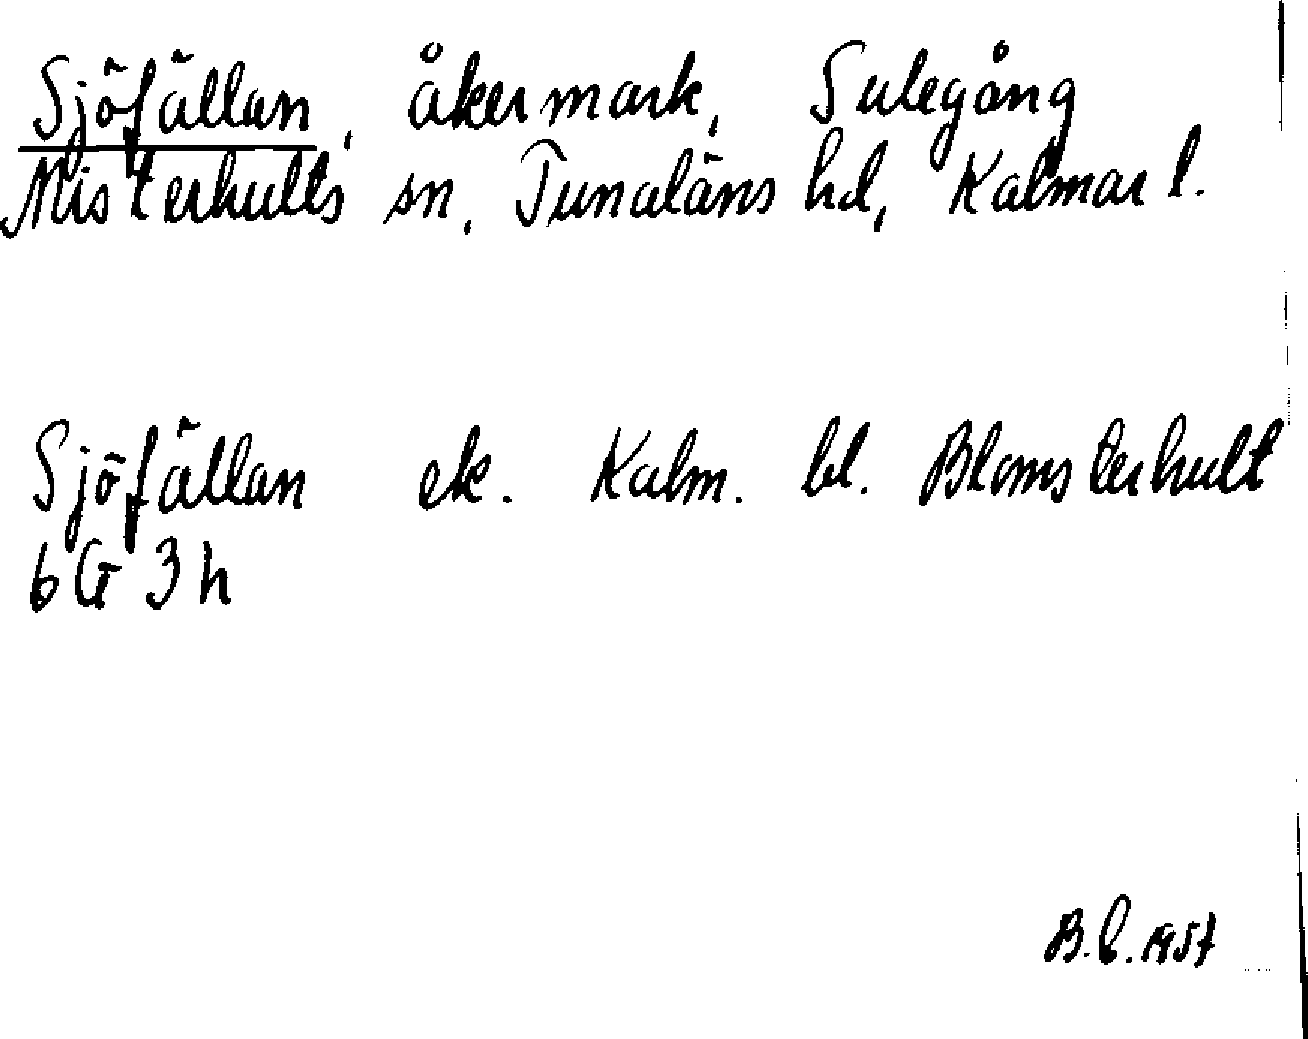 Sjöfällan, åkermark, Sulegång
Misterhults sn, Tunaläns hd, Kalmar l.
Sjöfällan ek. Kalm. bl. Blomsterhult
6G 3h
B.E. 1957